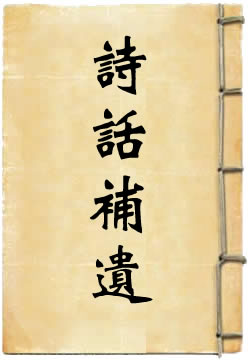 詩話補遺